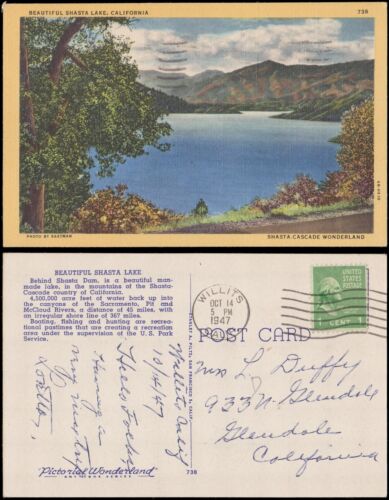 BEAUTIFUL SHASTA LAKE, CALIFORNIA
738
PHOTO BY EASTMAN
SHASTA-CASCADE WONDERLAND
BEAUTIFUL SHASTA LAKE
Behind Shasta Dam, is a beautiful man-
made lake, in the mountains of the Shasta-
Cascade country of California.
4,500,000 acre feet of water back up into
the canyons of the Sacramento, Pit and
McCloud Rivers, a distance of 45 miles, with
an irregular shore line of 367 miles.
Boating, fishing and hunting are recrea-
tional pastimes that are creating a recreation
area under the supervision of the U. S. Park
Service.
Willits Calif
10/14/47
Hello Folks
Having a
Loretta
Pictorial Wonderland
ART TONE SERIES
738
WILLITS
OCT 14
5 PM
1947
CALIF.
1 CENT 1
POST CARD
Miss L. Duffy
933 N. Glendale
Glendale
California